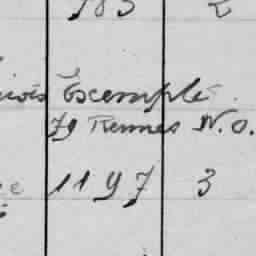 183 2
Exemplé
79 Rennes N.O.
1197 3